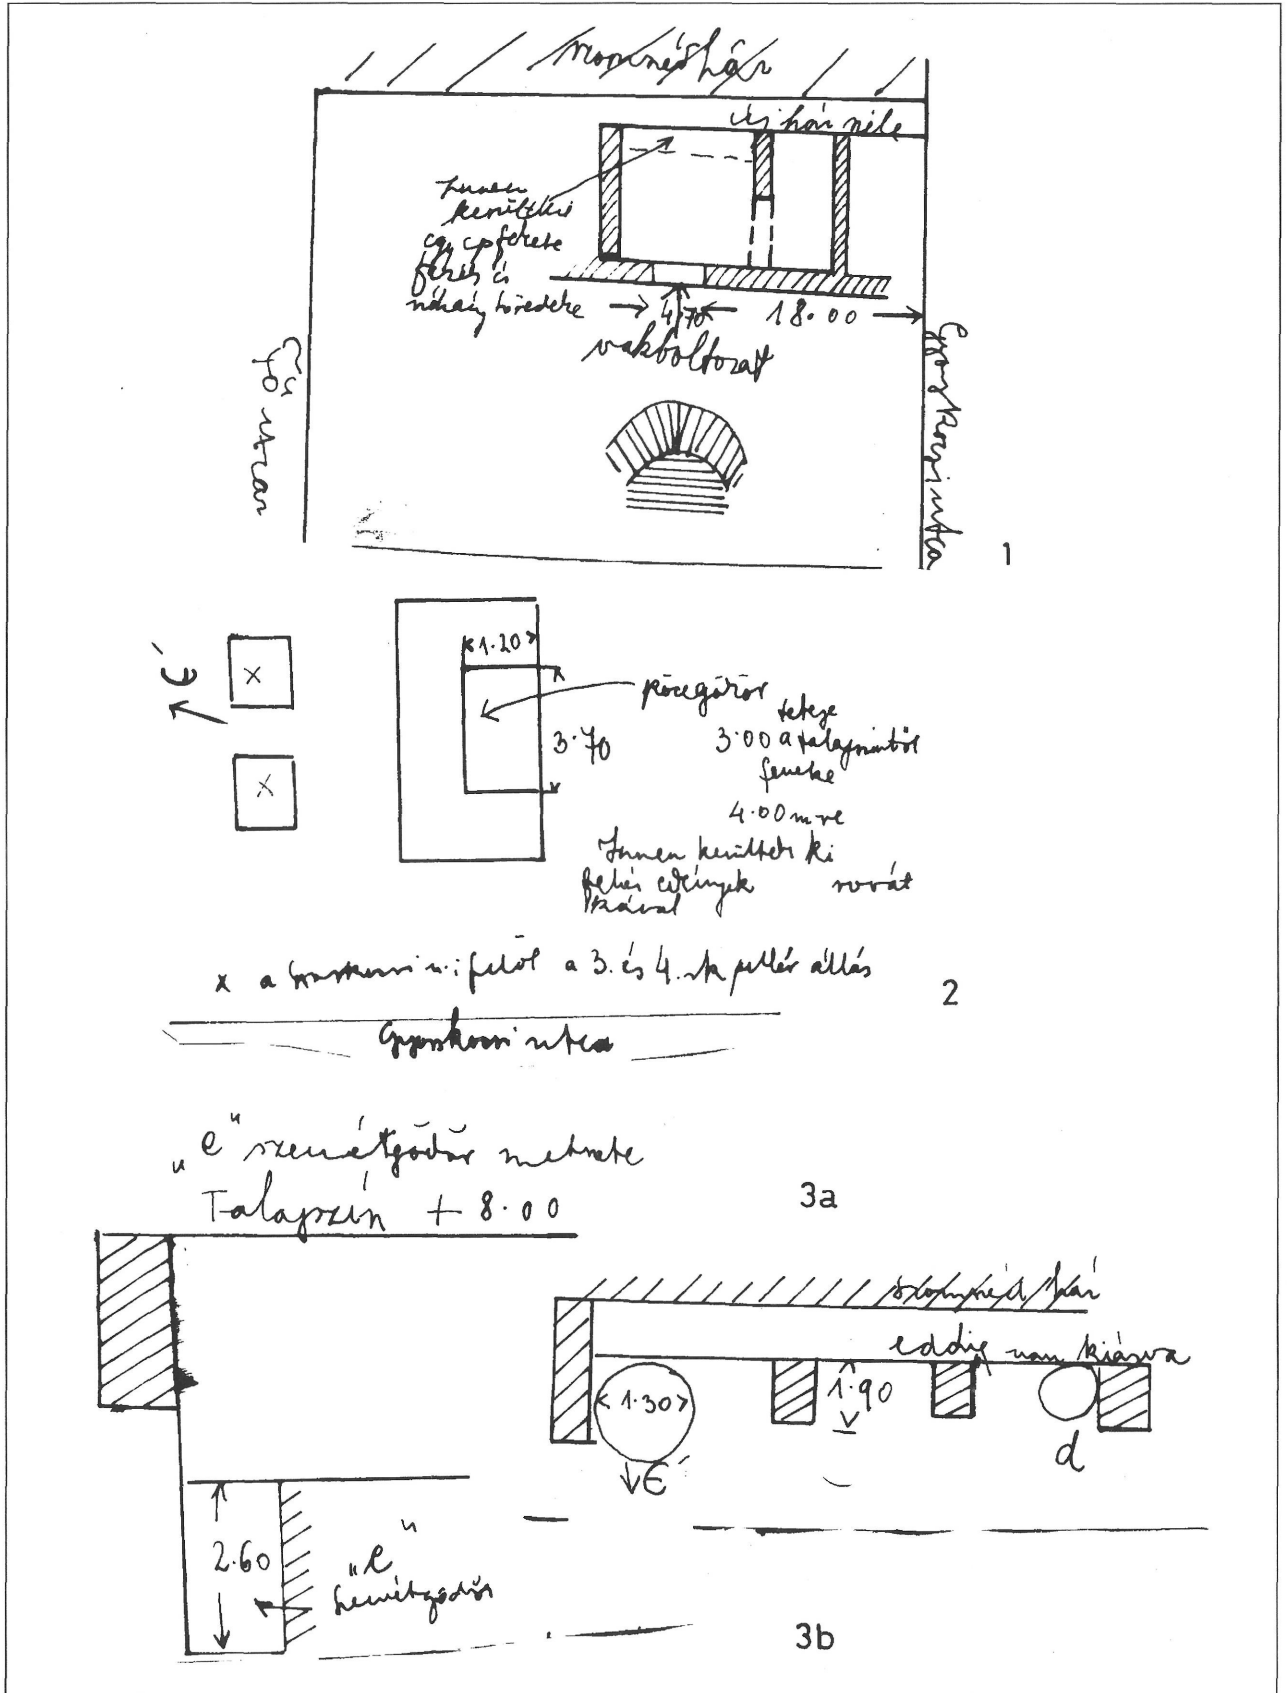 szomszéd ház
új ház széle
Innen
került ki
egy csó fekete
fazék és
néhány töredéke
4.70
18.00
vakboltozat
Fő utca
Gyorskocsi utca
1
É
x
x
1.20
3.70
pöcegödör
teteje
3.00 a talajszinttől
feneke
4.00 m-re
Innen kerültek ki
fehér edények rovát
kával
x a Gyorskocsi u. felől a 3. és 4. ik pillér állás
2
Gyorskocsi utca
„e" szemétgödör metszete
Talajszín + 8.00
3a
szomszéd ház
eddig van kiásva
1.30
1.90
É
d
2.60
„e"
szemétgödör
3b